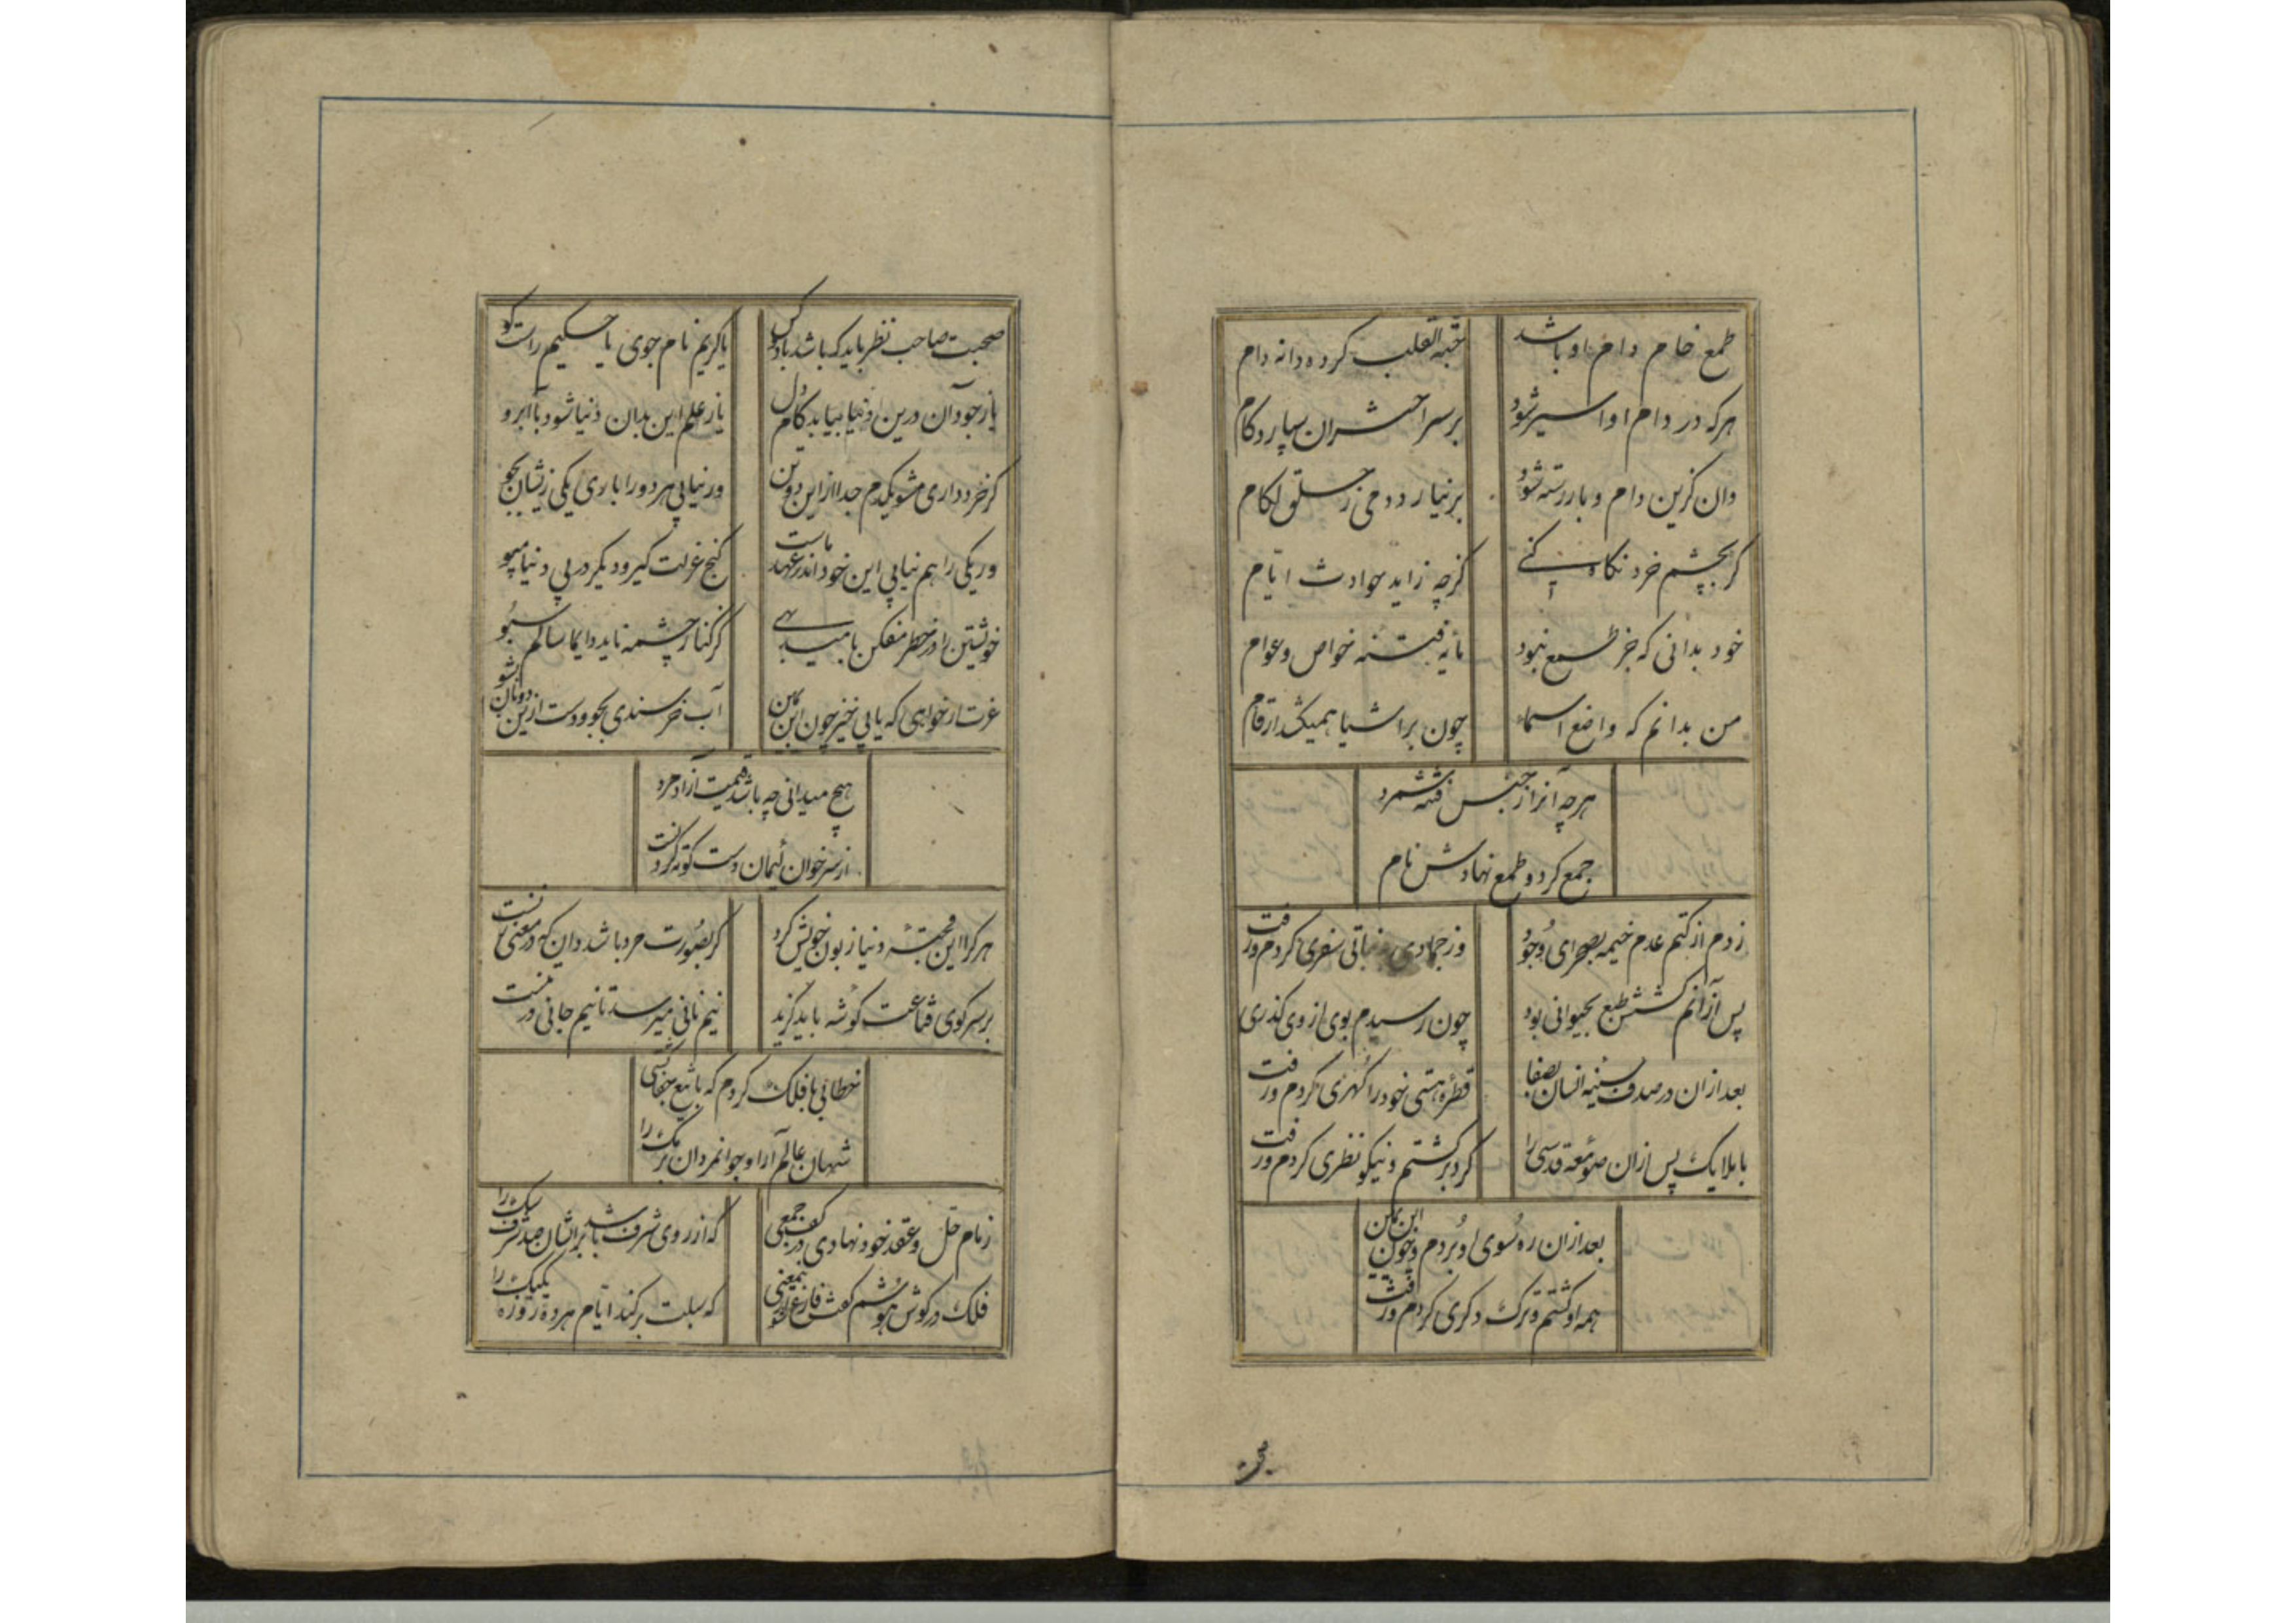 طمع خام دام او باشد حبة القلب کرده دانه دام
هرکه در دام او اسیر شود بر سر اختران سپارد کام
وان کزین دام وبا رسته شود بر نیارد دمی ز خلق لکام
کر بچشم خرد نکاه کنی کرچه زاید حوادث ایام
خود بدانی که جز طمع نبود مایه فتنه خواص و عوام
من بدانم که واضع اسماء چون بر اشیا همیکشد ارقام
هرچه آنرا ز جنس فتنه شمرد
جمع کرد و طمع نهادش نام
زدم از کتم عدم خیمه بصحرای وجود وز جمادی بنباتی سفری کردم و رفت
پس ازانم کشش طبع بحیوانی بود چون رسیدم بوی از وی کذری
بعد ازان در صدف سینه انسان بصفا قطره هستی خود را کهری کردم و رفت
با ملایک پس ازان صومعه قدسی را کرد بر کشتم و نیکو نظری کردم و رفت
بعد ازان ره سوی او بردم و چون ابن یمین
همه او کشتم و ترک دکری کردم و رفت
صحبت
صحبت صاحب نظر باید که باشد با دو کس یا کریم نام جوی یا حکیم راست کو
باز جود آن درین دنیا بیابد کام دل یا ز علم این بدان دنیا شود با آبرو
کر خرد داری مشو یکدم جدا از این دو تن ور نیابی هر دو را باری یکی زیشان بجو
ور یکی را هم نیابی این خود اندر عهد ماست کنج عزلت کیر و دیکر در پی دنیا مپو
خویشتن را در خطر مفکن بامید بهی کز کنار چشمه ناید دایما سالم سبو
عزت ار خواهی که یابی خیز چون ابن یمین آب خرسندی بجو و دست ازین دونان بشو
هیچ میدانی چه باشد قیمت آزاد مرد
از سر خوان لئیمان دست کوته کردنست
هر کرا این قحبه دنیا زبون خویش کرد کر بصورت مرد باشد دان که در معنی زنست
بر سر کوی قناعت کوشه باید کزید نیم نانی میرسد تا نیم جانی در تنست
خطابی با فلک کردم که با تیغ جفا کشتی
شهان عالم آرا و جوانمردان برمک را
زمام حل و عقد خود نهادی در کف جمعی که از روی شرف باشد بر ایشان صد شرف سک را
فلک در کوش هوشم کفت فارغ باش ازین معنی که سبلت بر کند ایام هر ده روزه یکیک را